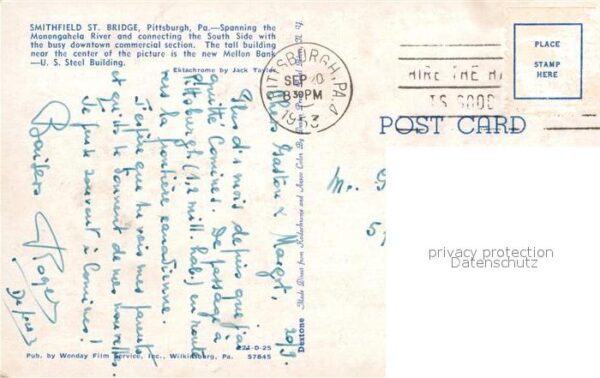 SMITHFIELD ST. BRIDGE, Pittsburgh, Pa.—Spanning the
Monongahela River and connecting the South Side with
the busy downtown commercial section. The tall building
near the center of the picture is the new Mellon Bank
—U. S. Steel Building.
Ektachrome by Jack Taylor
Chers Gaston & Margt, 20/9.
Plus dix mois depuis que j'ai
quitté Comines. De passage à
Pittsburgh (1,2 mill hab.) en route
vers la frontière canadienne.
J'espère que tu vois mes parents
et qu'ils te donnent de mes nouvelles.
Je pense souvent à Comines!
Baisers
Roger
PITTSBURGH, PA. 4
SEP 20
8 30 PM
1953
HIRE THE HA
IS GOOD
PLACE
STAMP
HERE
POST CARD
Mr. G
5
Dextone Made Direct from Kodachrome and Ansco Color By
D-25
57845
Pub. by Wonday Film Service, Inc., Wilkinsburg, Pa.
privacy protection
Datenschutz